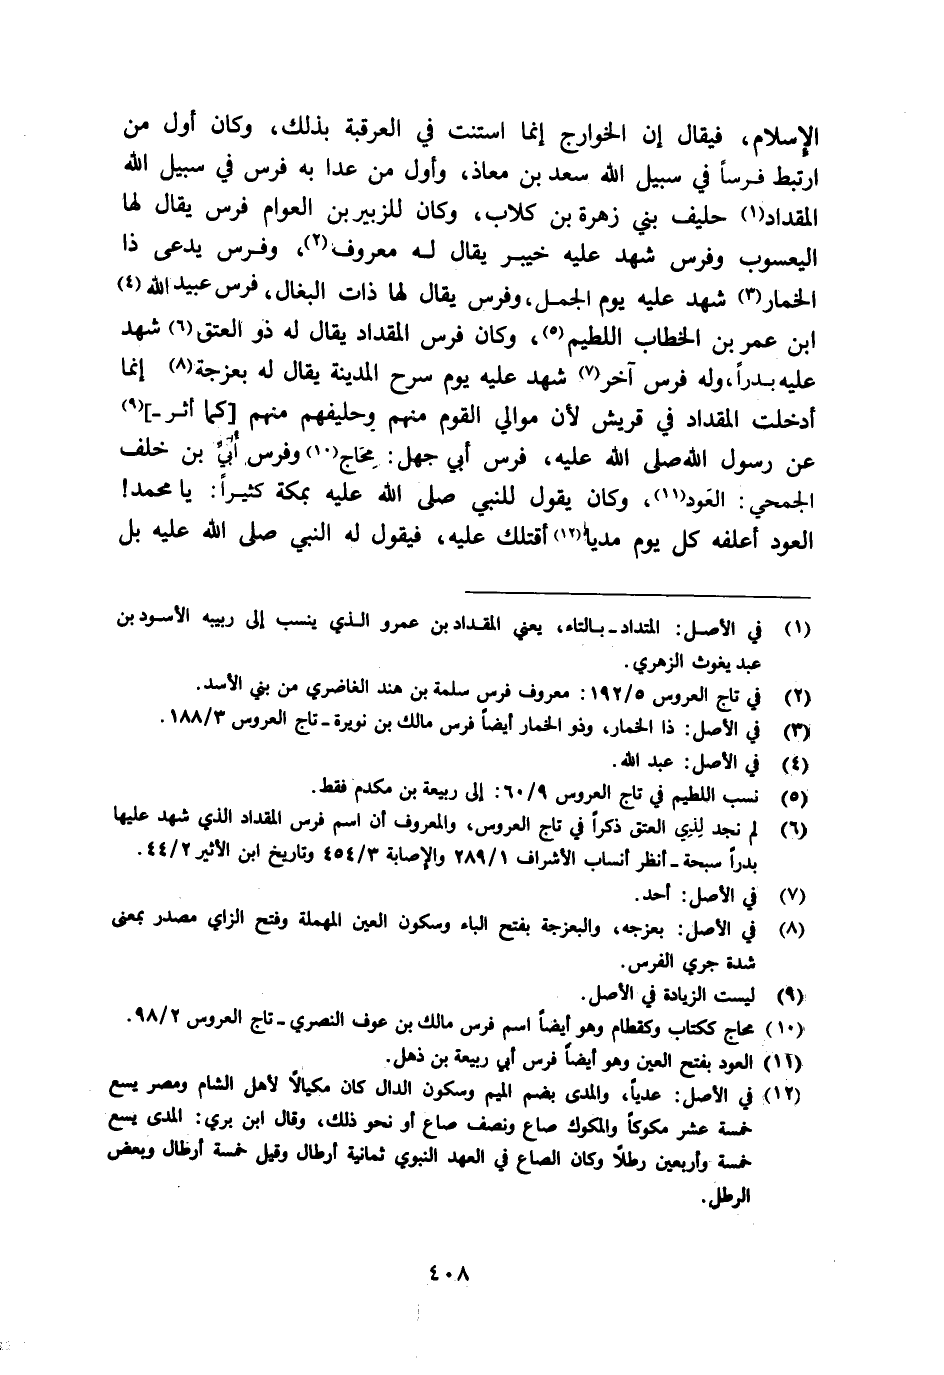 الإسلام، فيقال إن الخوارج إنما استنت في العرقبة بذلك، وكان أول من
ارتبط فرساً في سبيل الله سعد بن معاذ، وأول من عدا به فرس في سبيل الله
المقداد(١) حليف بني زهرة بن كلاب، وكان للزبير بن العوام فرس يقال لها
اليعسوب وفرس شهد عليه خيبر يقال له معروف(٢)، وفرس يدعى ذا
الخمار(٣) شهد عليه يوم الجمل، وفرس يقال لها ذات البغال، فرس عبيد الله(٤)
ابن عمر بن الخطاب اللطيم(٥)، وكان فرس المقداد يقال له ذو العتق(٦) شهد
عليه بدراً، وله فرس آخر(٧) شهد عليه يوم سرح المدينة يقال له بعزجة(٨) إنما
أدخلت المقداد في قريش لأن موالي القوم منهم وحليفهم منهم [كما أثر ـ](٩)
عن رسول الله صلى الله عليه، فرس أبي جهل: مِحَاج(١٠) وفرس أُبَيّ بن خلف
الجمحي: العَود(١١)، وكان يقول للنبي صلى الله عليه بمكة كثيراً: يا محمد!
العود أعلفه كل يوم مدياً(١٢) أقتلك عليه، فيقول له النبي صلى الله عليه بل
(١) في الأصل: المتداد ـ بالتاء، يعني المقداد بن عمرو الذي ينسب إلى ربيبه الأسود بن
عبد يغوث الزهري.
(٢) في تاج العروس ١٩٢/٥: معروف فرس سلمة بن هند الغاضري من بني الأسد.
(٣) في الأصل: ذا الخمار، وذو الخمار أيضاً فرس مالك بن نويرة ـ تاج العروس ١٨٨/٣.
(٤) في الأصل: عبد الله.
(٥) نسب اللطيم في تاج العروس ٦٠/٩: إلى ربيعة بن مكدم فقط.
(٦) لم نجد لِذِي العتق ذكراً في تاج العروس، والمعروف أن اسم فرس المقداد الذي شهد عليها
بدراً سبحة ـ أنظر أنساب الأشراف ٢٨٩/١ والإصابة ٤٥٤/٣ وتاريخ ابن الأثير ٤٤/٢.
(٧) في الأصل: أحد.
(٨) في الأصل: بعزجه، والبعزجة بفتح الباء وسكون العين المهملة وفتح الزاي مصدر بمعنى
شدة جري الفرس.
(٩) ليست الزيادة في الأصل.
(١٠) محاج ككتاب وكقطام وهو أيضاً اسم فرس مالك بن عوف النصري ـ تاج العروس ٩٨/٢.
(١١) العود بفتح العين وهو أيضاً فرس أبي ربيعة بن ذهل.
(١٢) في الأصل: عدياً، والمدى بضم الميم وسكون الدال كان مكيالاً لأهل الشام ومصر يسع
خمسة عشر مكوكاً والمكوك صاع ونصف صاع أو نحو ذلك، وقال ابن بري: المدى يسع
خمسة وأربعين رطلاً وكان الصاع في العهد النبوي ثمانية أرطال وقيل خمسة أرطال وبعض
الرطل.
٤٠٨